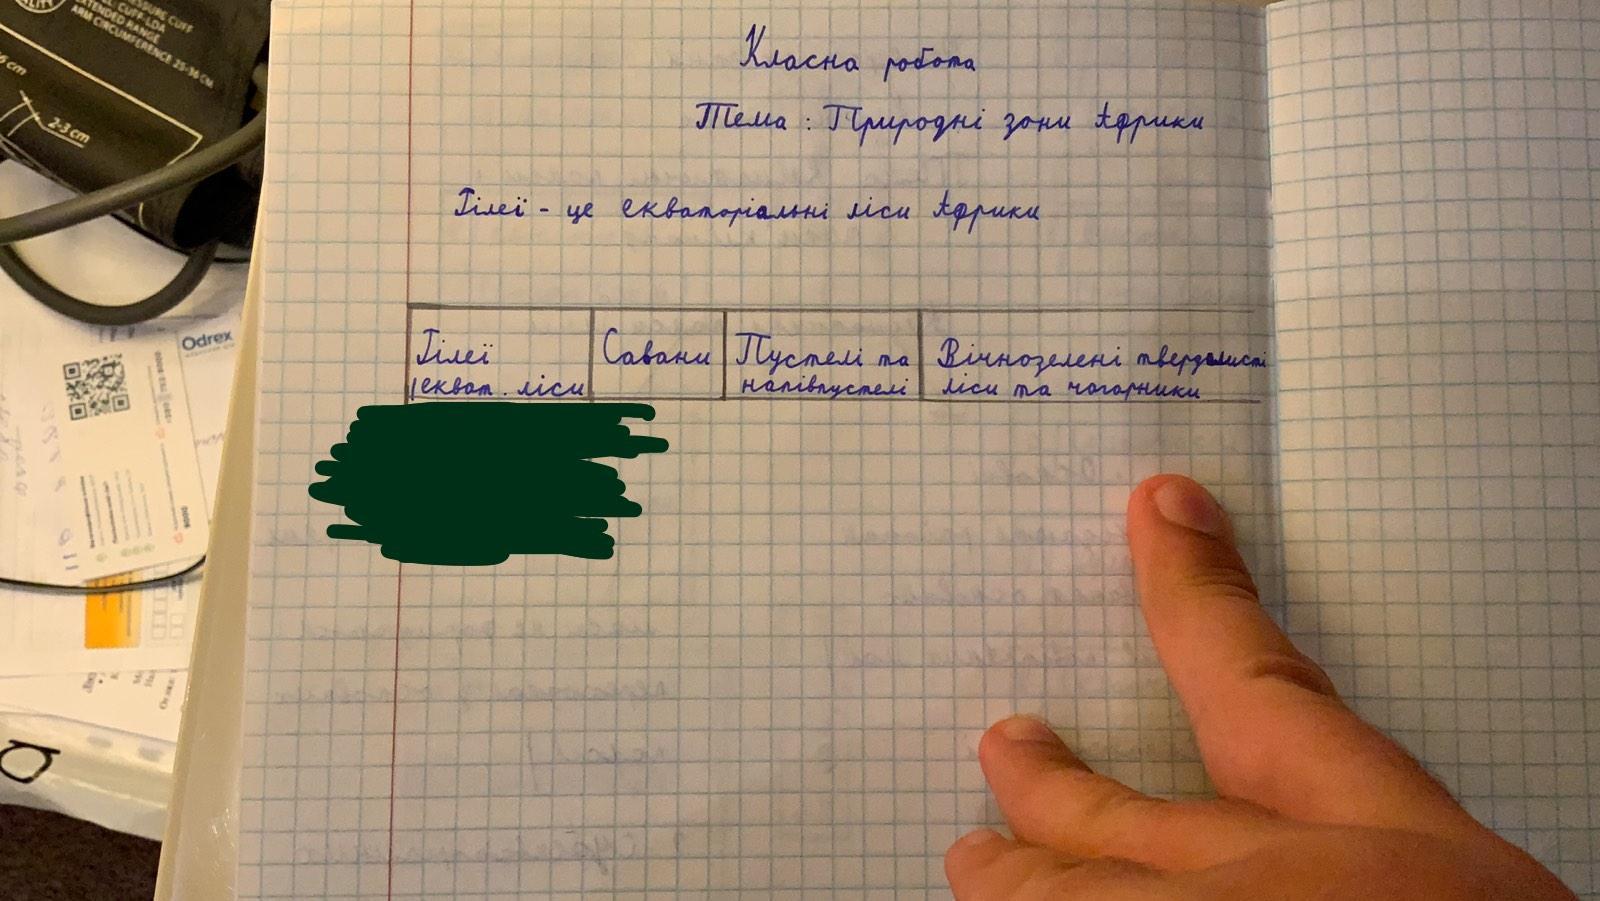 PRESSURE CUFF
CUFF-LDA
EXTENDED RANGE
ARM CIRCUMFERENCE 25-36 CM
2-3 cm
Odrex
Класна робота
Тема : Природні зони Африки
Гілеї - це екваторіальні ліси Африки
Гілеї Савани Пустелі та Вічнозелені твердолисті
екват. ліси напівпустелі ліси та чагарники